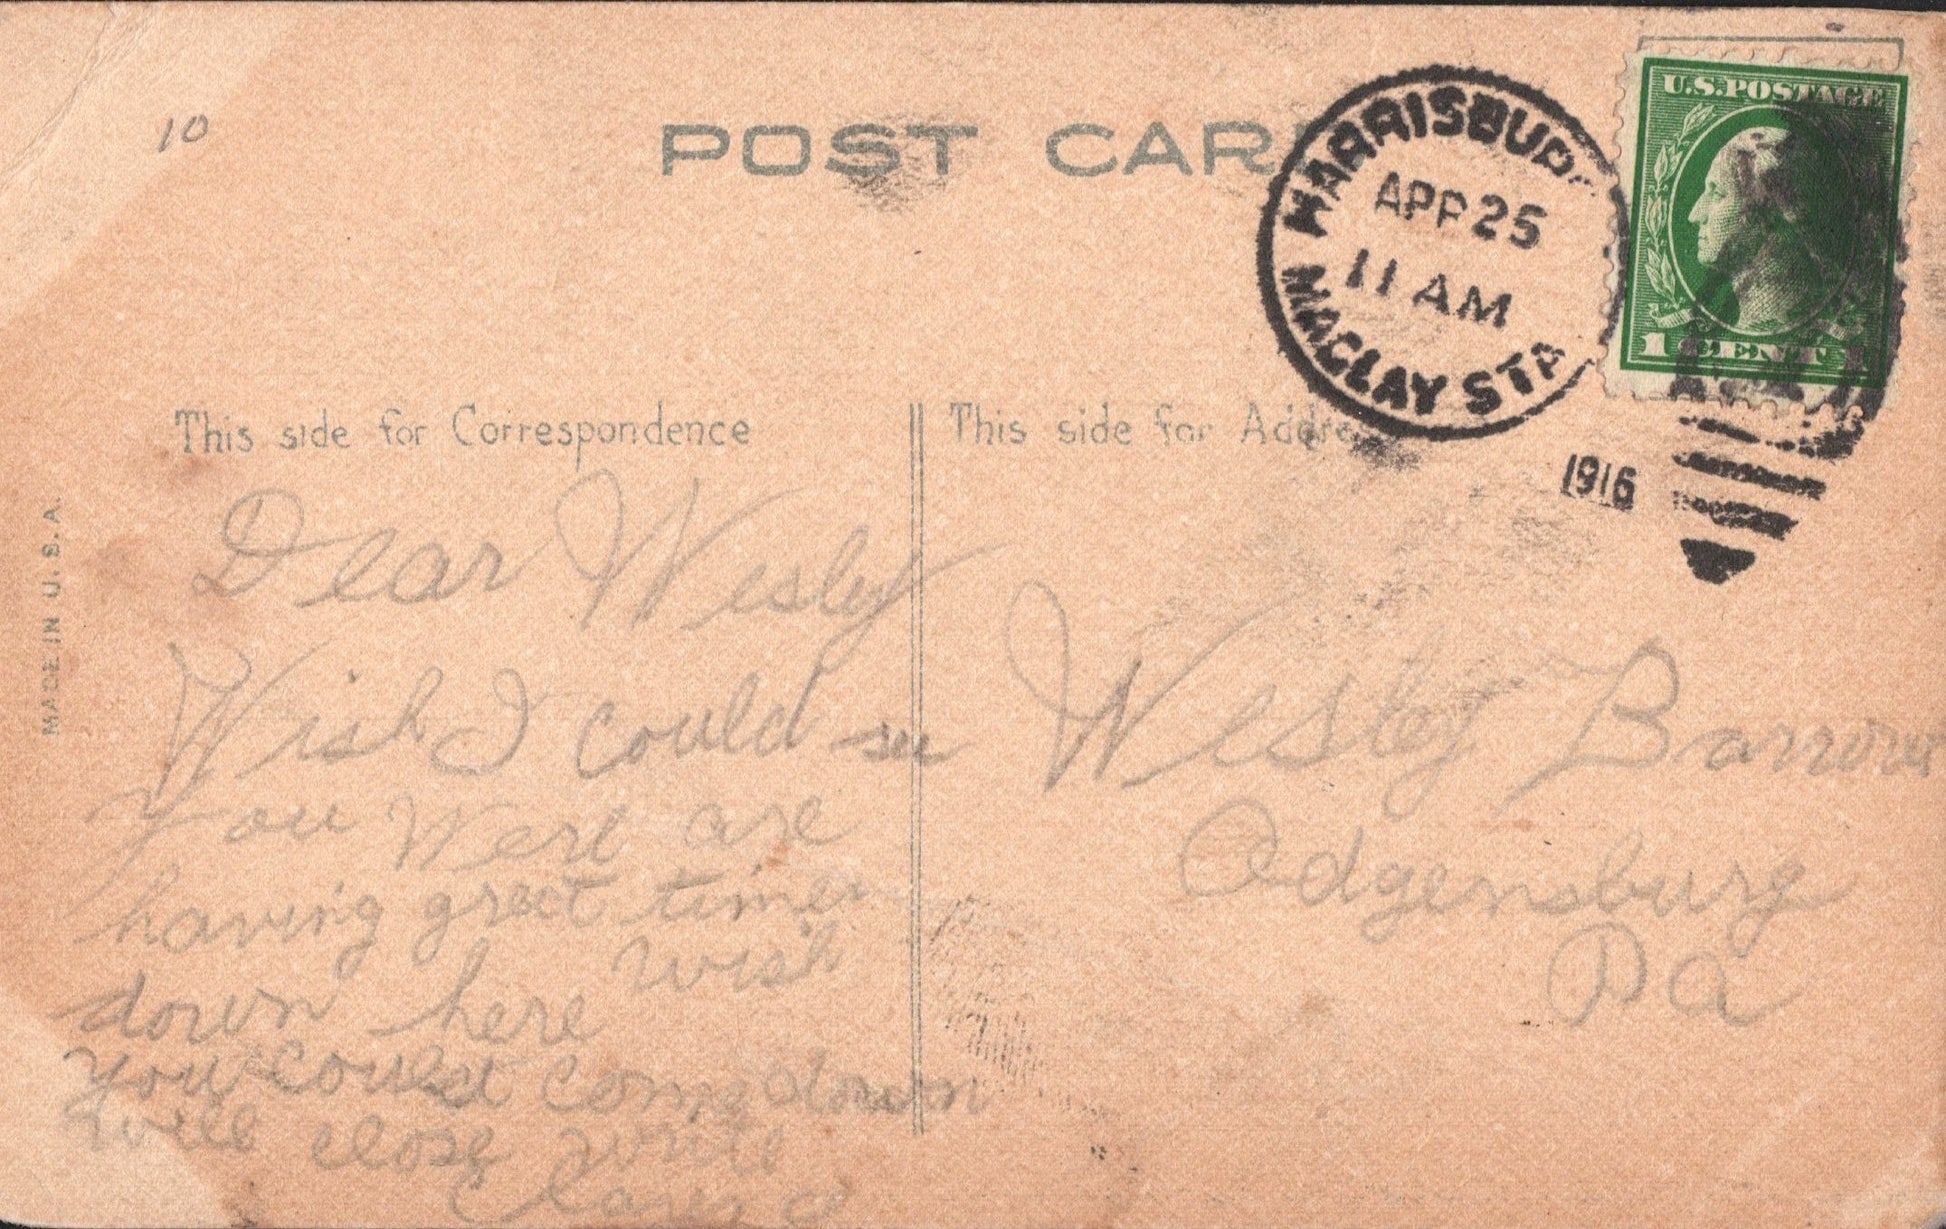 10
POST CAR
HARRISBUR
APR 25
11 AM
MACLAY STA
1916
U.S. POSTAGE
1 CENT 1
This side for Correspondence
This side for Addre
MADE IN U.S.A.
Dear Wesley
Wish I could see
you Were are
having great times
down here wish
you could come down
will close write
Wesley Barrow
Odgensburg
Pa